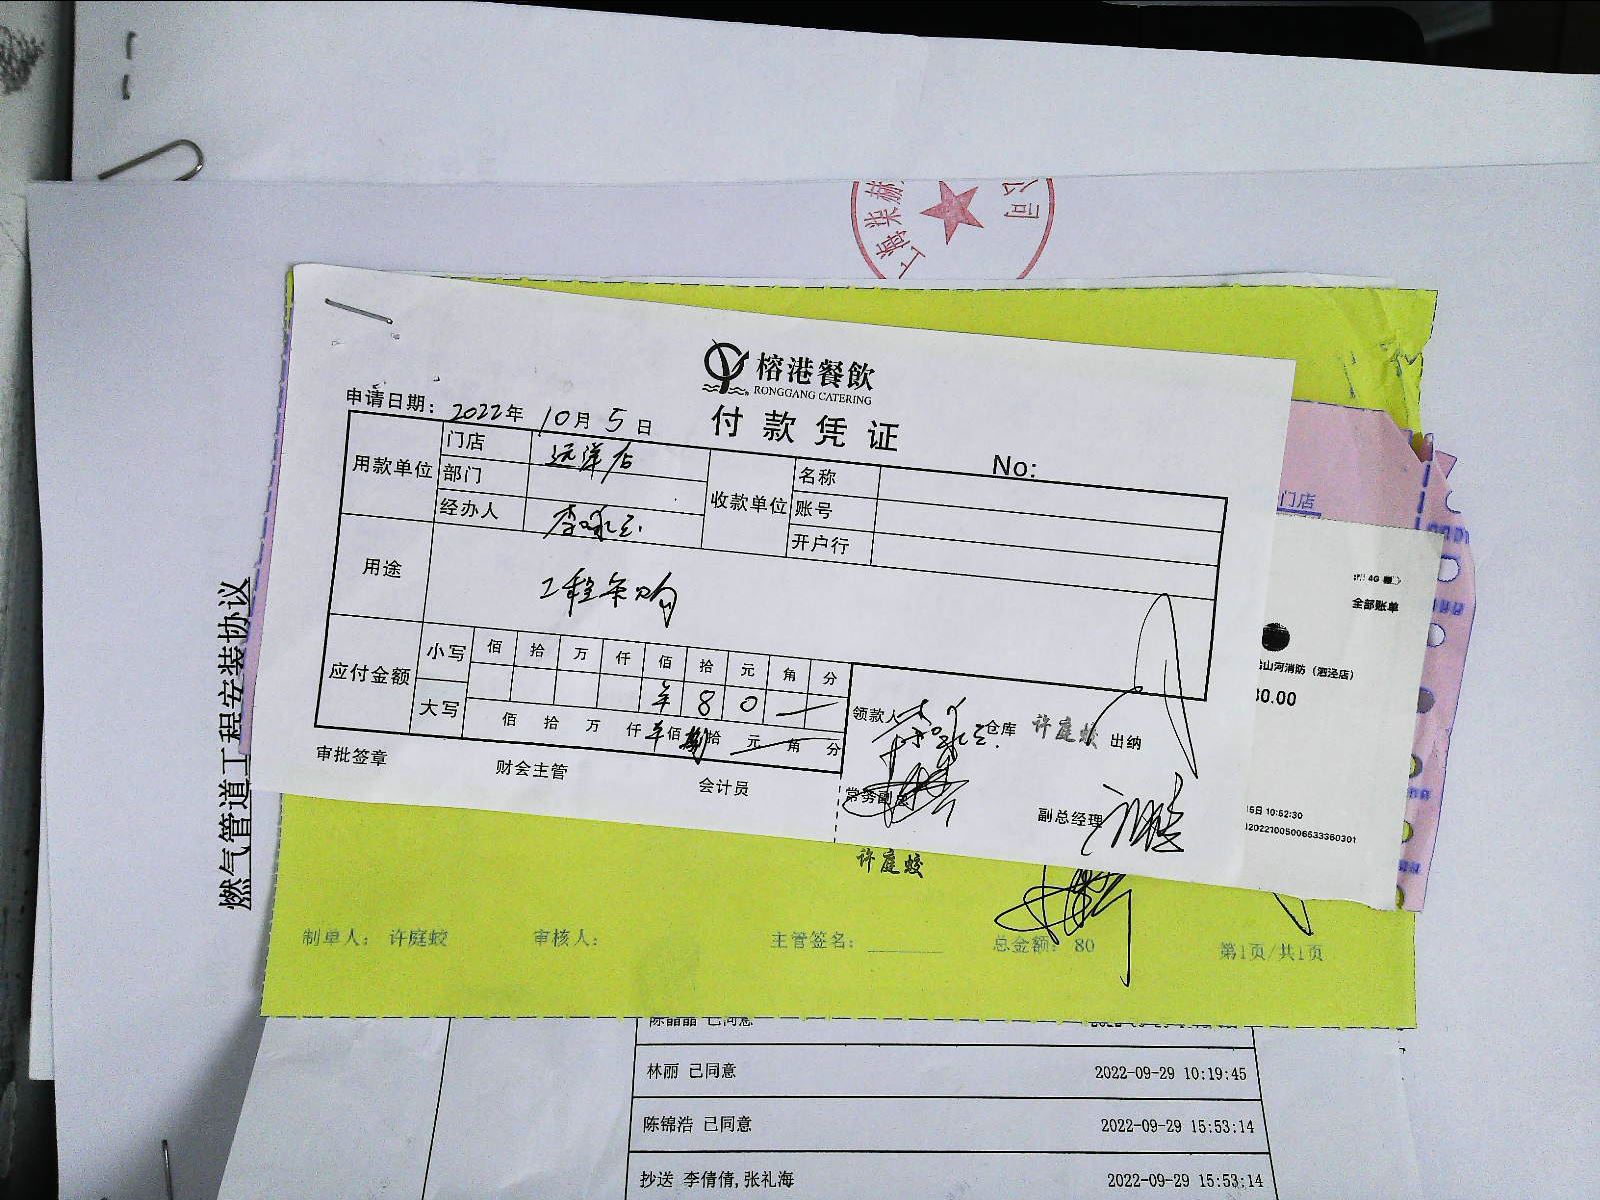 上海柒赫
公司
榕港餐飲
RONGGANG CATERING
付款凭证
申请日期：2022年10月5日
No:
用款单位
门店 远洋店
部门
经办人
收款单位
名称
账号
开户行
用途
工程采购
应付金额
小写
佰 拾 万 仟 佰 拾 元 角 分
¥ 8 0
大写
佰 拾 万 仟 佰 捌 拾 元 角 分
领款人
仓库 许庭蛟
出纳
审批签章
财会主管
会计员
常务副总
副总经理
许庭蛟
制单人： 许庭蛟
审核人：
主管签名：
总金额： 80
第1页/共1页
门店
4G
全部账单
山河消防（泗泾店）
80.00
5日 10:52:30
120221005006533360301
燃气管道工程安装协议
陈晶晶 已同意
林丽 已同意 2022-09-29 10:19:45
陈锦浩 已同意 2022-09-29 15:53:14
抄送 李倩倩,张礼海 2022-09-29 15:53:14